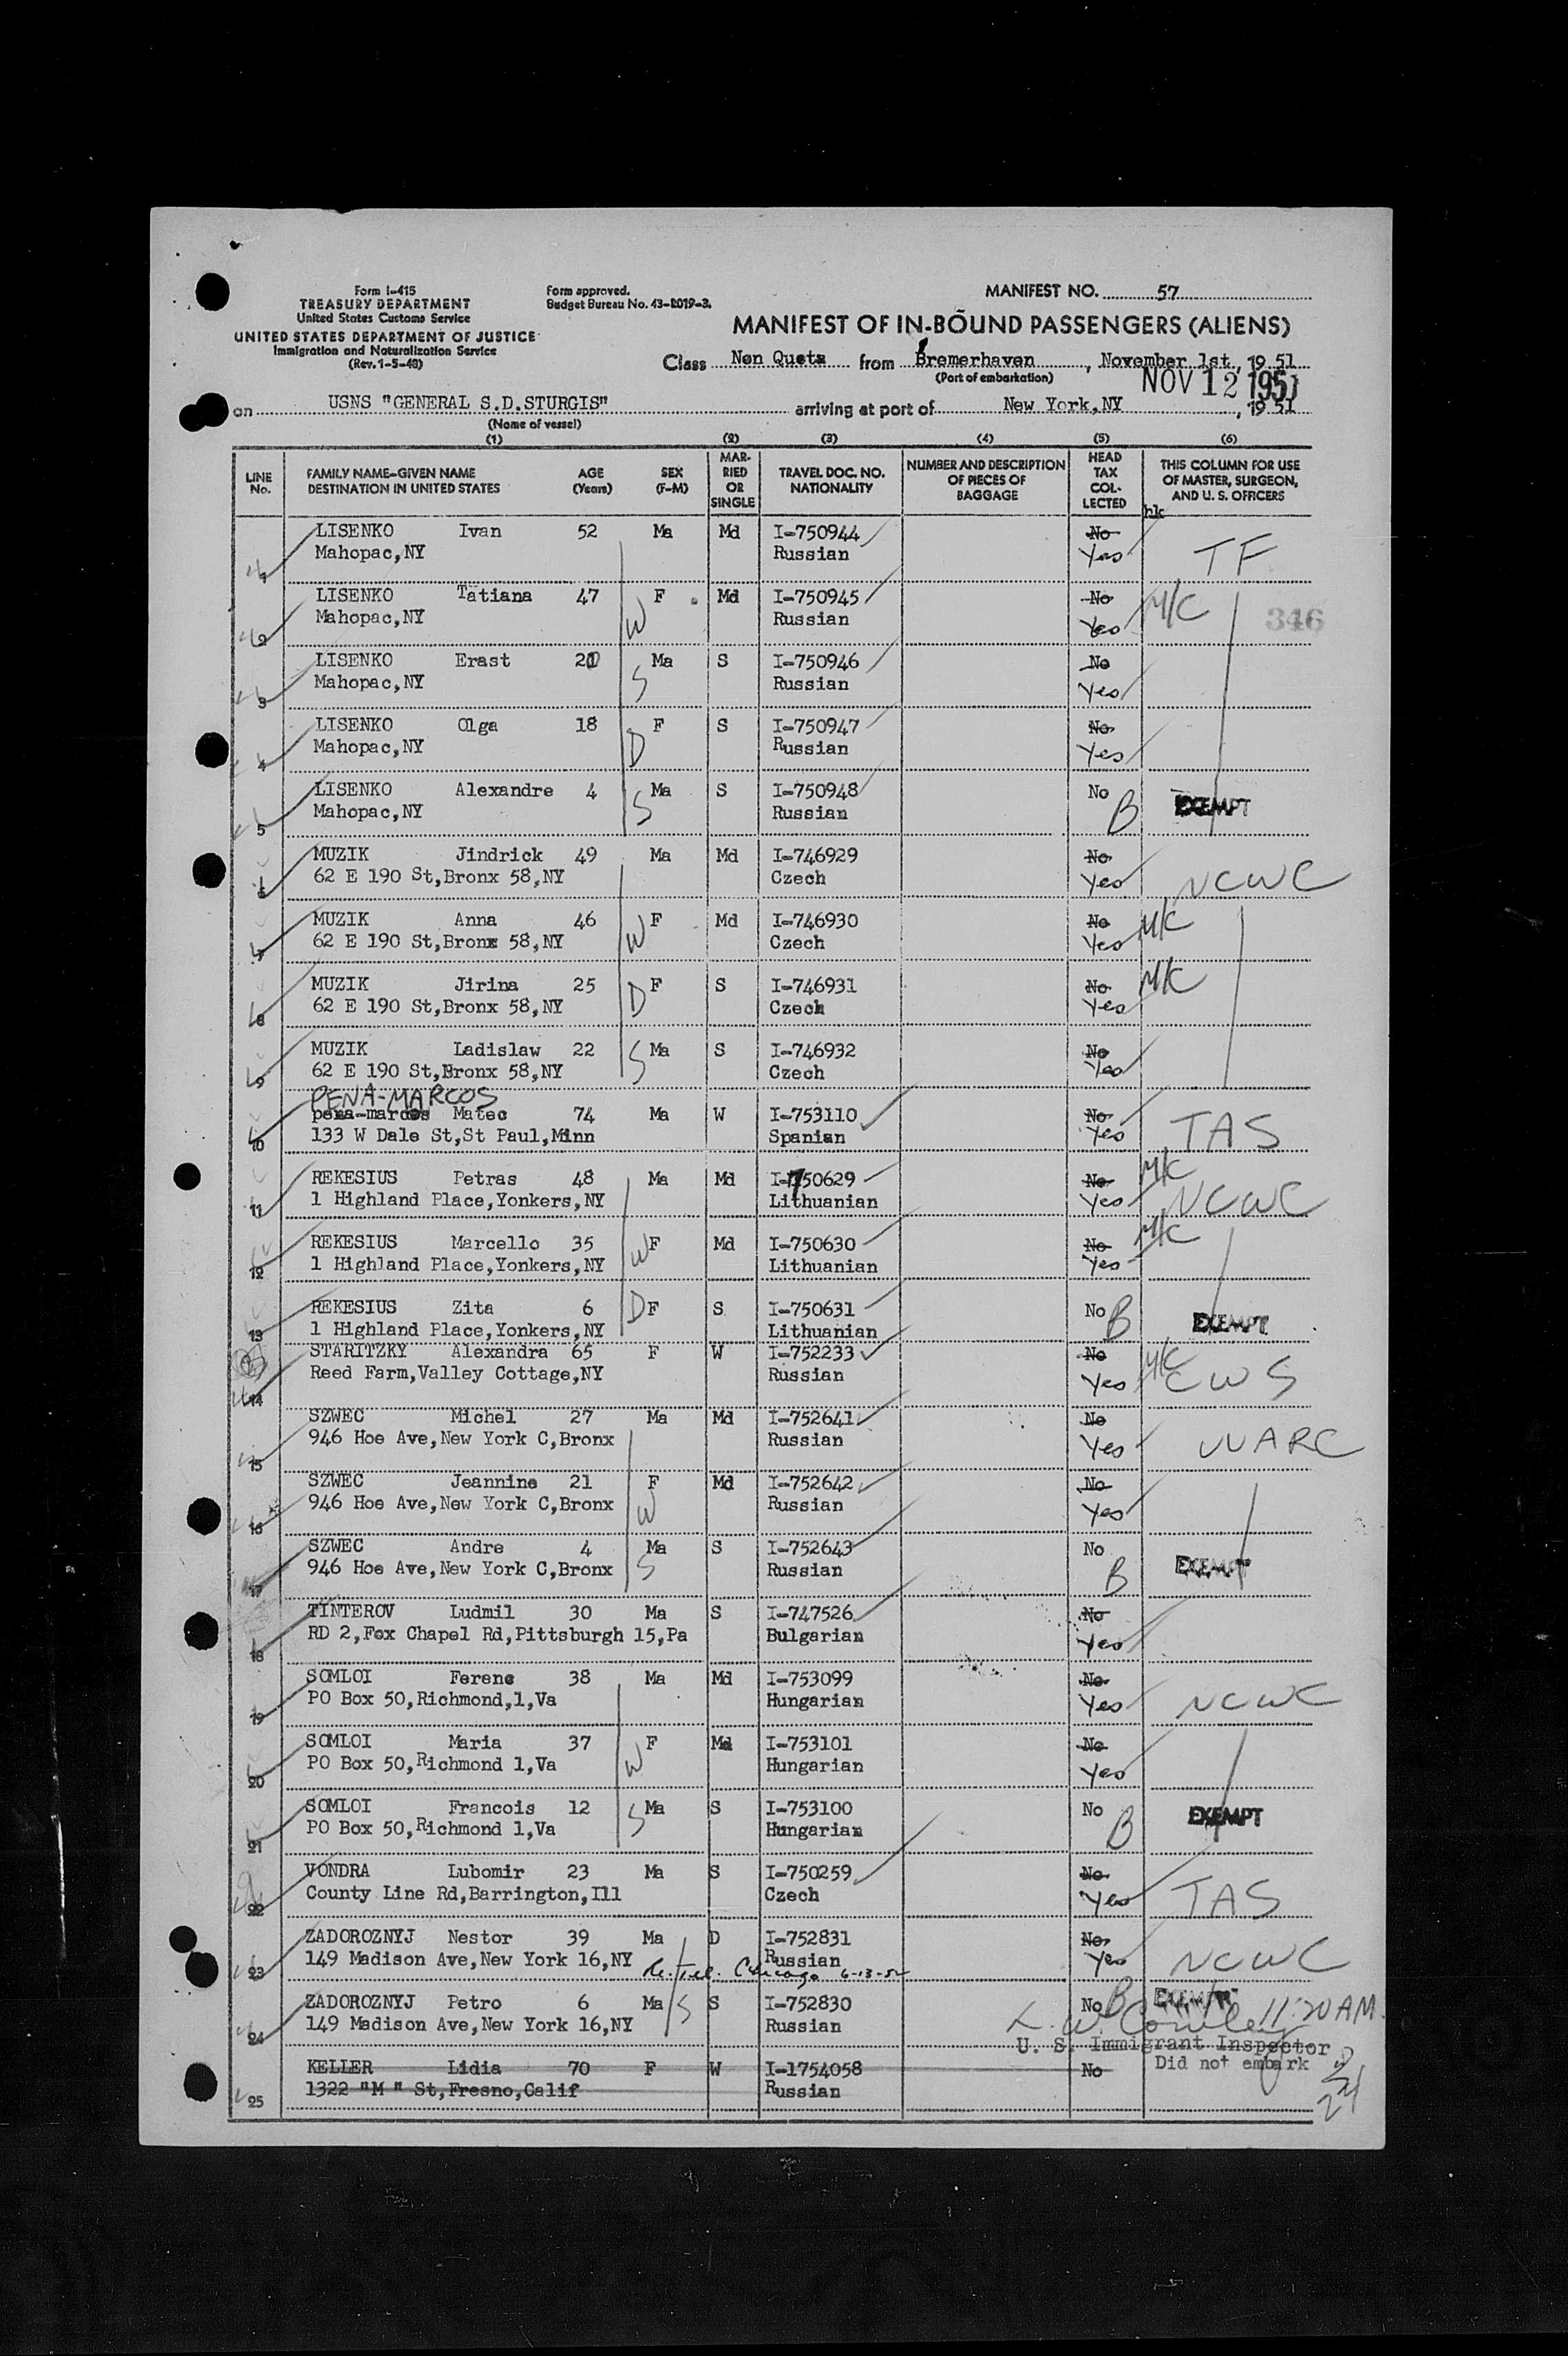 Form I-415
TREASURY DEPARTMENT
United States Customs Service
UNITED STATES DEPARTMENT OF JUSTICE
Immigration and Naturalization Service
(Rev. 1-5-48)
Form approved.
Budget Bureau No. 43-R019-3.
MANIFEST NO. 57
MANIFEST OF IN-BOUND PASSENGERS (ALIENS)
Class Non Quota from Bremerhaven, November 1st, 19 51
(Port of embarkation)
NOV 12 1951
on USNS "GENERAL S.D.STURGIS" arriving at port of New York,NY, 19 51
(Name of vessel)
(1) (2) (3) (4) (5) (6)
LINE No.
FAMILY NAME-GIVEN NAME
DESTINATION IN UNITED STATES
AGE (Years)
SEX (F-M)
MARRIED OR SINGLE
TRAVEL DOC. NO. NATIONALITY
NUMBER AND DESCRIPTION OF PIECES OF BAGGAGE
HEAD TAX COLLECTED
THIS COLUMN FOR USE OF MASTER, SURGEON, AND U. S. OFFICERS
hk
1 LISENKO Ivan 52 Ma Md I-750944 No
Mahopac,NY Russian Yes TF
2 LISENKO Tatiana 47 W F Md I-750945 No M/C
Mahopac,NY Russian Yes 346
3 LISENKO Erast 20 S Ma S I-750946 No
Mahopac,NY Russian Yes
4 LISENKO Olga 18 D F S I-750947 No
Mahopac,NY Russian Yes
5 LISENKO Alexandre 4 S Ma S I-750948 No B EXEMPT
Mahopac,NY Russian
6 MUZIK Jindrick 49 Ma Md I-746929 No
62 E 190 St,Bronx 58,NY Czech Yes NCWC
7 MUZIK Anna 46 W F Md I-746930 No M/C
62 E 190 St,Bronx 58,NY Czech Yes
8 MUZIK Jirina 25 D F S I-746931 No M/C
62 E 190 St,Bronx 58,NY Czech Yes
9 MUZIK Ladislaw 22 S Ma S I-746932 No
62 E 190 St,Bronx 58,NY Czech Yes
PENA-MARCOS
10 pena-marcos Mateo 74 Ma W I-753110 No
133 W Dale St,St Paul,Minn Spanian Yes TAS
11 REKESIUS Petras 48 Ma Md I-750629 No M/C
1 Highland Place,Yonkers,NY Lithuanian Yes NCWC
12 REKESIUS Marcello 35 W F Md I-750630 No M/C
1 Highland Place,Yonkers,NY Lithuanian Yes
13 REKESIUS Zita 6 D F S I-750631 No B EXEMPT
1 Highland Place,Yonkers,NY Lithuanian
14 STARITZKY Alexandra 65 F W I-752233 No M/C
Reed Farm,Valley Cottage,NY Russian Yes CWS
15 SZWEC Michel 27 Ma Md I-752641 No
946 Hoe Ave,New York C,Bronx Russian Yes WARC
16 SZWEC Jeannine 21 W F Md I-752642 No
946 Hoe Ave,New York C,Bronx Russian Yes
17 SZWEC Andre 4 S Ma S I-752643 No B EXEMPT
946 Hoe Ave,New York C,Bronx Russian
18 TINTEROV Ludmil 30 Ma S I-747526 No
RD 2,Fox Chapel Rd,Pittsburgh 15,Pa Bulgarian Yes
19 SOMLOI Ferenc 38 Ma Md I-753099 No
PO Box 50,Richmond,1,Va Hungarian Yes NCWC
20 SOMLOI Maria 37 W F Md I-753101 No
PO Box 50,Richmond 1,Va Hungarian Yes
21 SOMLOI Francois 12 S Ma S I-753100 No B EXEMPT
PO Box 50,Richmond 1,Va Hungarian
22 VONDRA Lubomir 23 Ma S I-750259 No
County Line Rd,Barrington,Ill Czech Yes TAS
23 ZADOROZNYJ Nestor 39 Ma D I-752831 No
149 Madison Ave,New York 16,NY Russian Yes NCWC
Chicago 6-13-52
24 ZADOROZNYJ Petro 6 S Ma S I-752830 No B EXEMPT
149 Madison Ave,New York 16,NY Russian 11:20 AM.
U. S. Immigrant Inspector
25 KELLER Lidia 70 F W I-1754058 No Did not embark
1322 "M" St,Fresno,Calif Russian
24